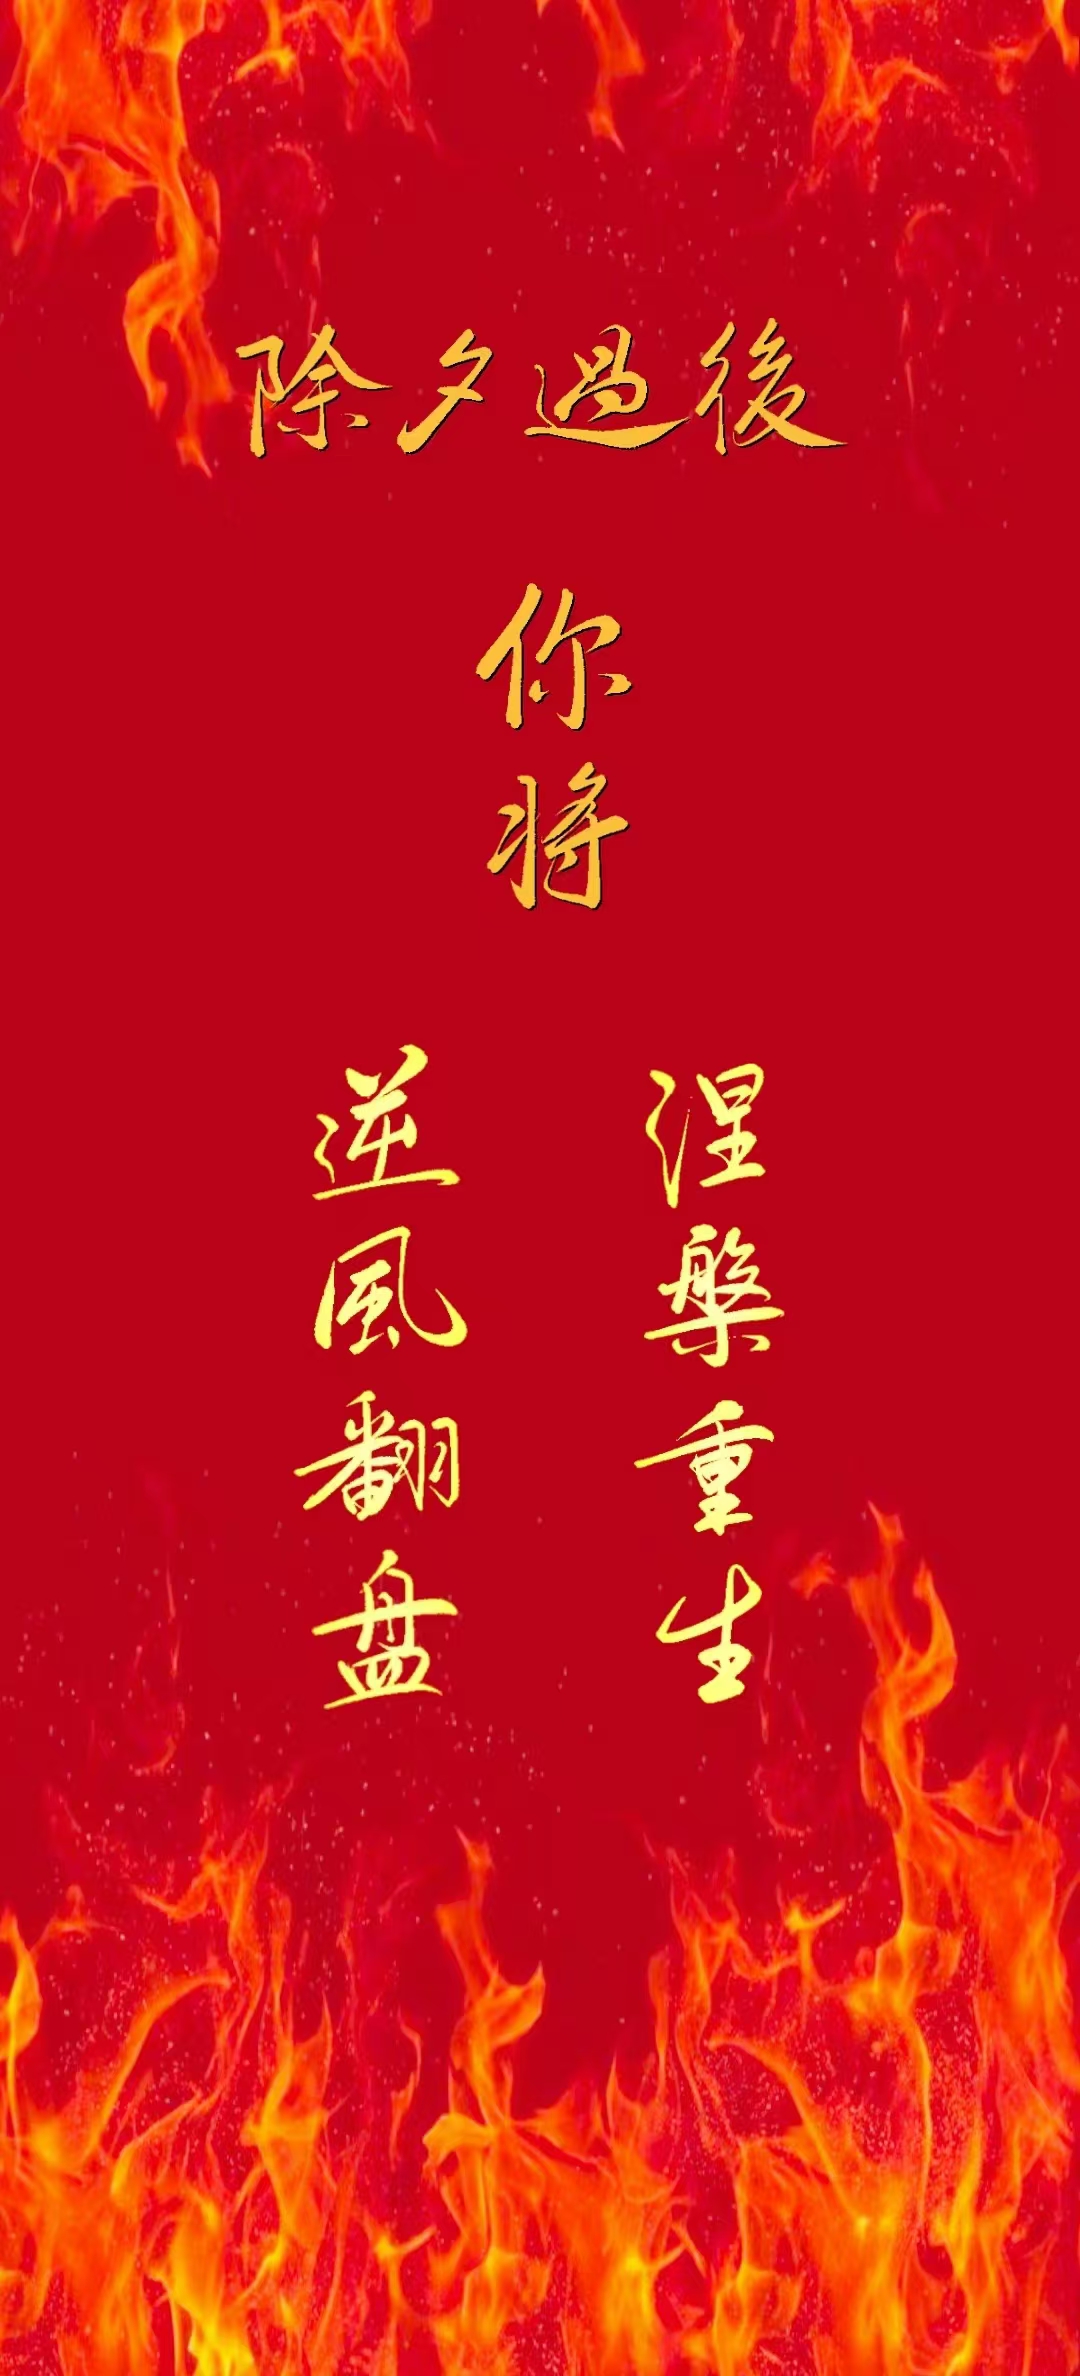 除夕過後
你將
涅槃重生
逆風翻盘